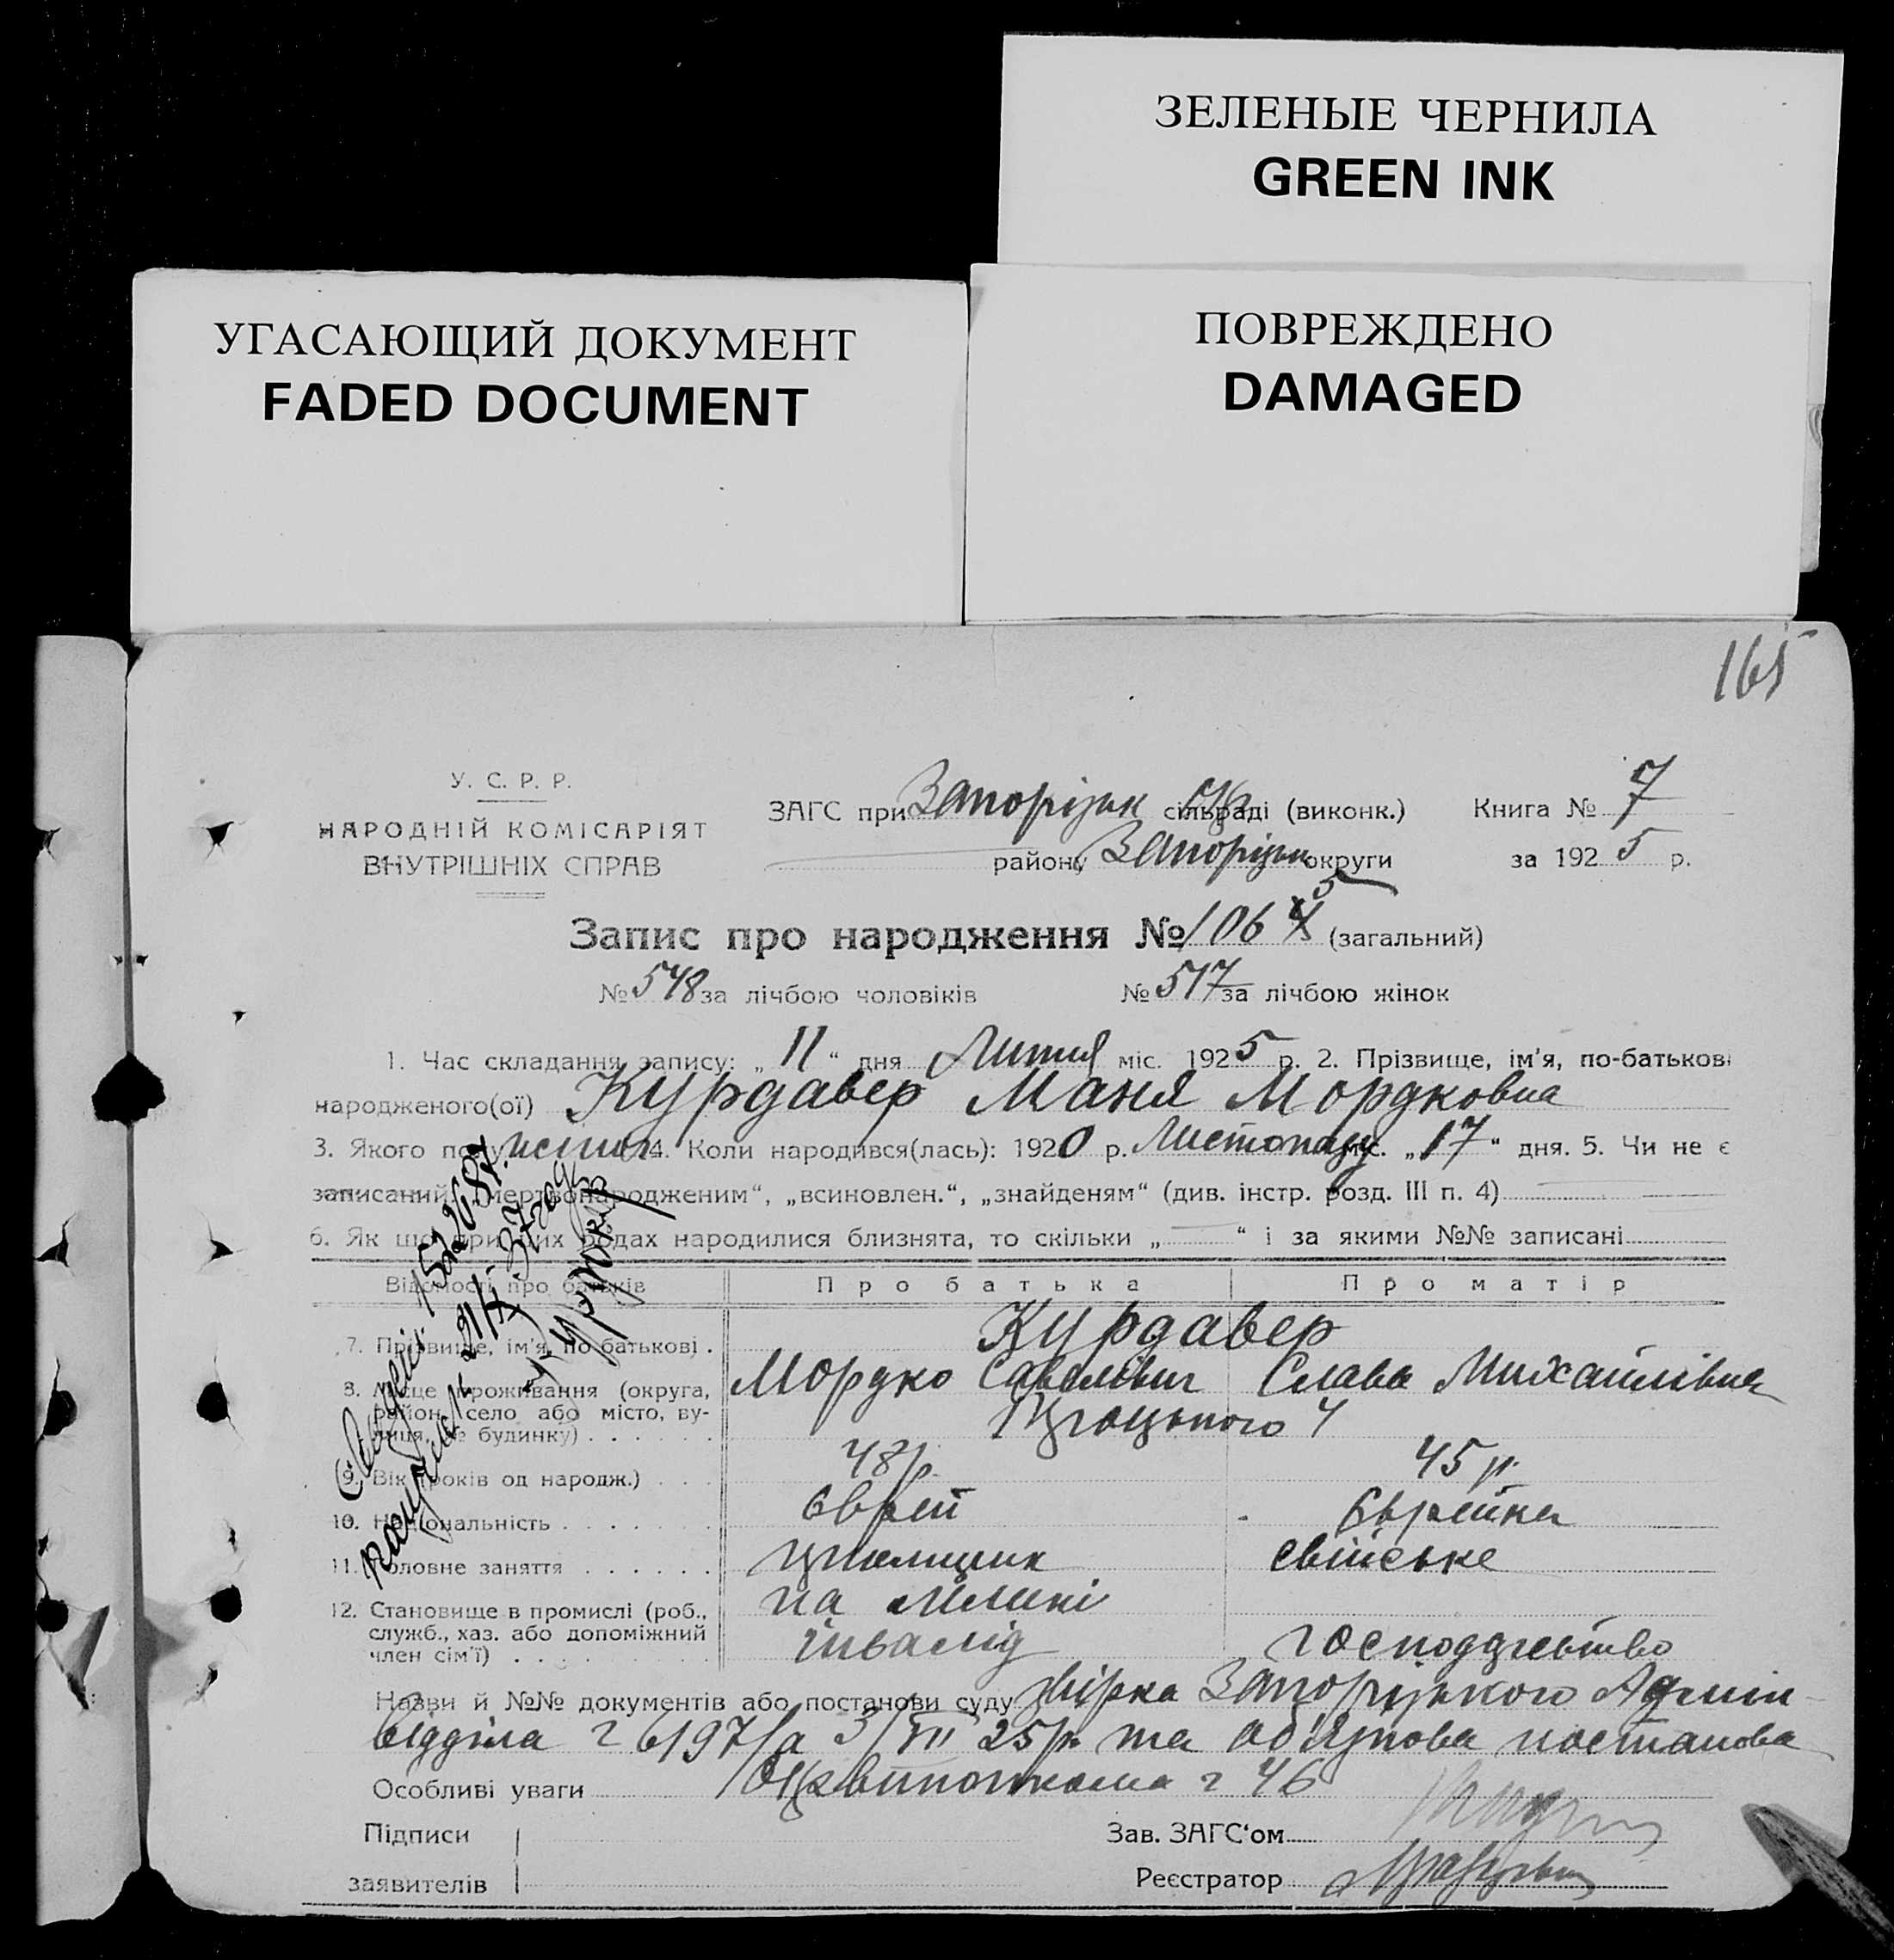 ЗЕЛЕНЫЕ ЧЕРНИЛА
GREEN INK
УГАСАЮЩИЙ ДОКУМЕНТ
FADED DOCUMENT
ПОВРЕЖДЕНО
DAMAGED
165
У. С. Р. Р.
НАРОДНІЙ КОМІСАРІЯТ
ВНУТРІШНІХ СПРАВ
ЗАГС при Запорізьк сільраді (виконк.)
району Запорізьк округи
Книга № 7
за 1925 р.
Запис про народження № 1065 (загальний)
№ 548 за лічбою чоловіків № 517 за лічбою жінок
1. Час складання запису: „ 11 “ дня Липня міс. 1925 р. 2. Прізвище, ім’я, по-батькові
народженого(ої) Курдавер Маня Мордковна
3. Якого полу 4. Коли народився(лась): 1920 р. Листопаду міс. „ 17 “ дня. 5. Чи не є
записаний: „мертвонародженим“, „всиновлен.“, „знайденям“ (див. інстр. розд. III п. 4)
6. Як що при цих родах народилися близнята, то скільки „ “ і за якими №№ записані
Відомості про батьків Про батька Про матір
7. Прізвище, ім’я, по батькові . Курдавер
Мордко Савелівич Слава Михайлівна
8. Місце проживання (округа,
район, село або місто, ву-
лиця, № будинку) . . . . . . Троцького 4
9. Вік (років од народж.) . . . 48 р. 45 р.
10. Національність . . . . . . . Єврей Єврейка
11. Головне заняття . . . . . . свійське
на млині
12. Становище в промислі (роб.,
служб., хаз. або допоміжний
член сім’ї) . . . . . . . . . інвалід господарство
Назви й №№ документів або постанови суду Запорізького Адмін-
відділа 6197/а 3/VII 25 р. та постанова
Особливі уваги 46
Підписи
заявителів
Зав. ЗАГС‘ом
Реєстратор